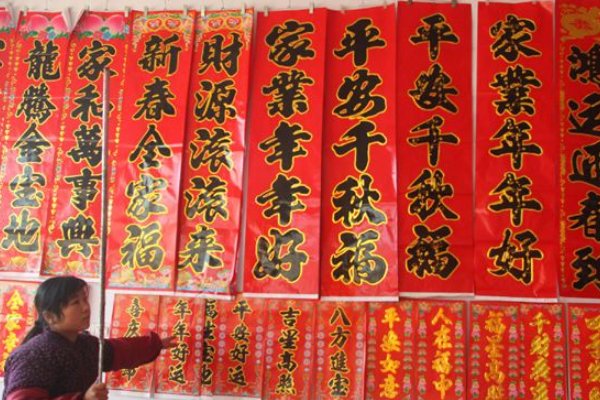 龍騰金宝地
家和萬事興
新春全家福
財源滚滚来
家業年年好
平安千秋福
平安千秋福
家業年年好
鴻运迎春到
年年好运
吉星高照
八方進宝
平安如意
人在福中